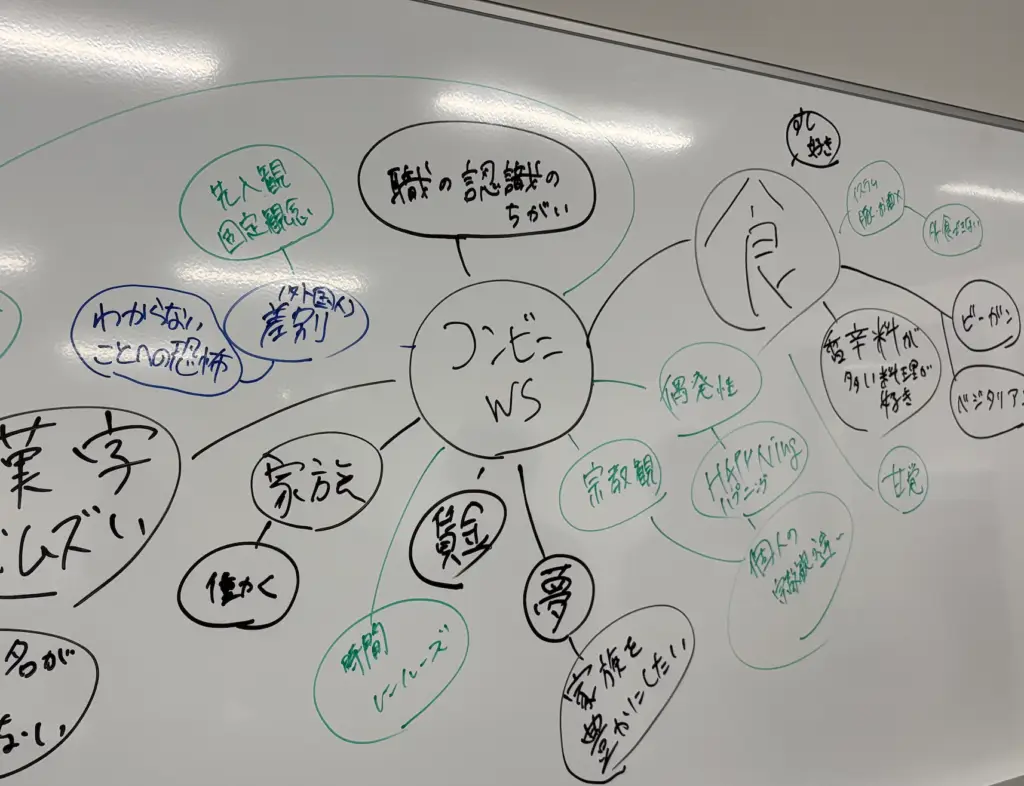 すし
好き
食
職の認識の
ちがい
先入観
固定観念
(外国人)
差別
わからない
ことへの恐怖
コンビニ
WS
ビーガン
ベジタリアン
香辛料が
多い料理が
好き
甘党
偶発性
HAPPNing
ハプニング
宗教観
個人の
漢字
ムズい
家族
働く
賃金
夢
家族を
豊かにしたい
時間
ルーズ
名が
ない